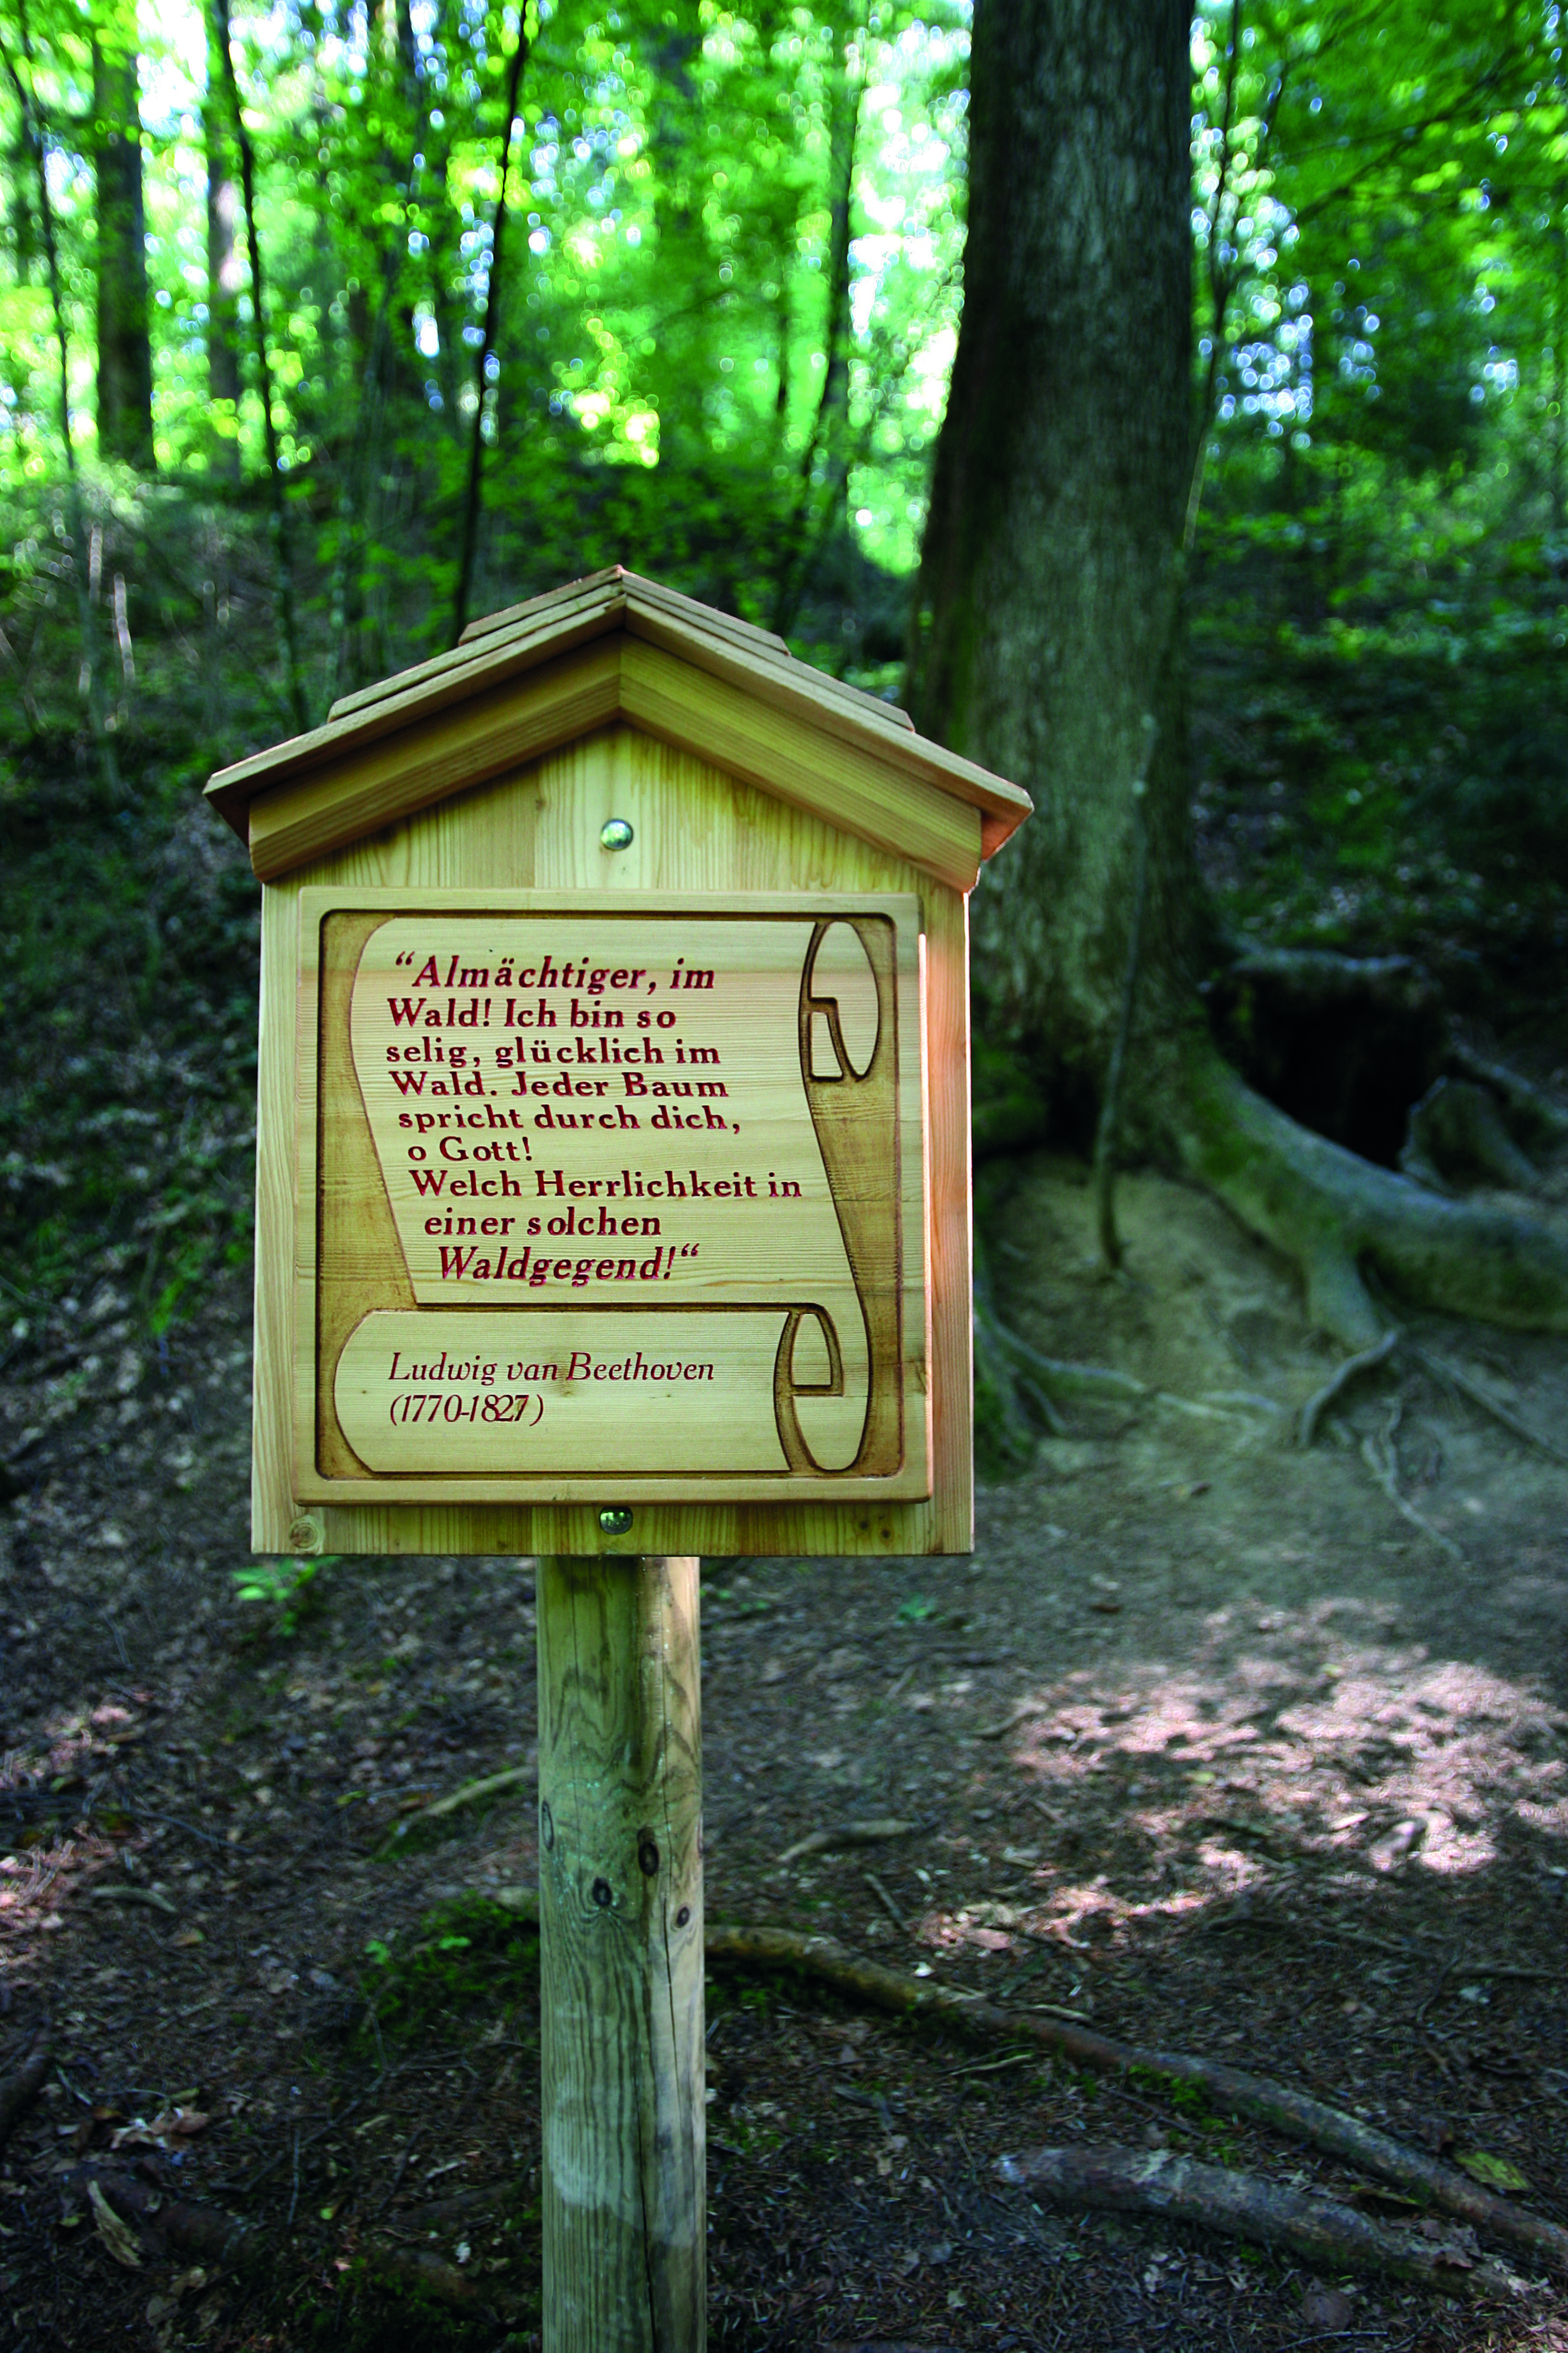 “Almächtiger, im
Wald! Ich bin so
selig, glücklich im
Wald. Jeder Baum
spricht durch dich,
o Gott!
Welch Herrlichkeit in
einer solchen
Waldgegend!“
Ludwig van Beethoven
(1770-1827)